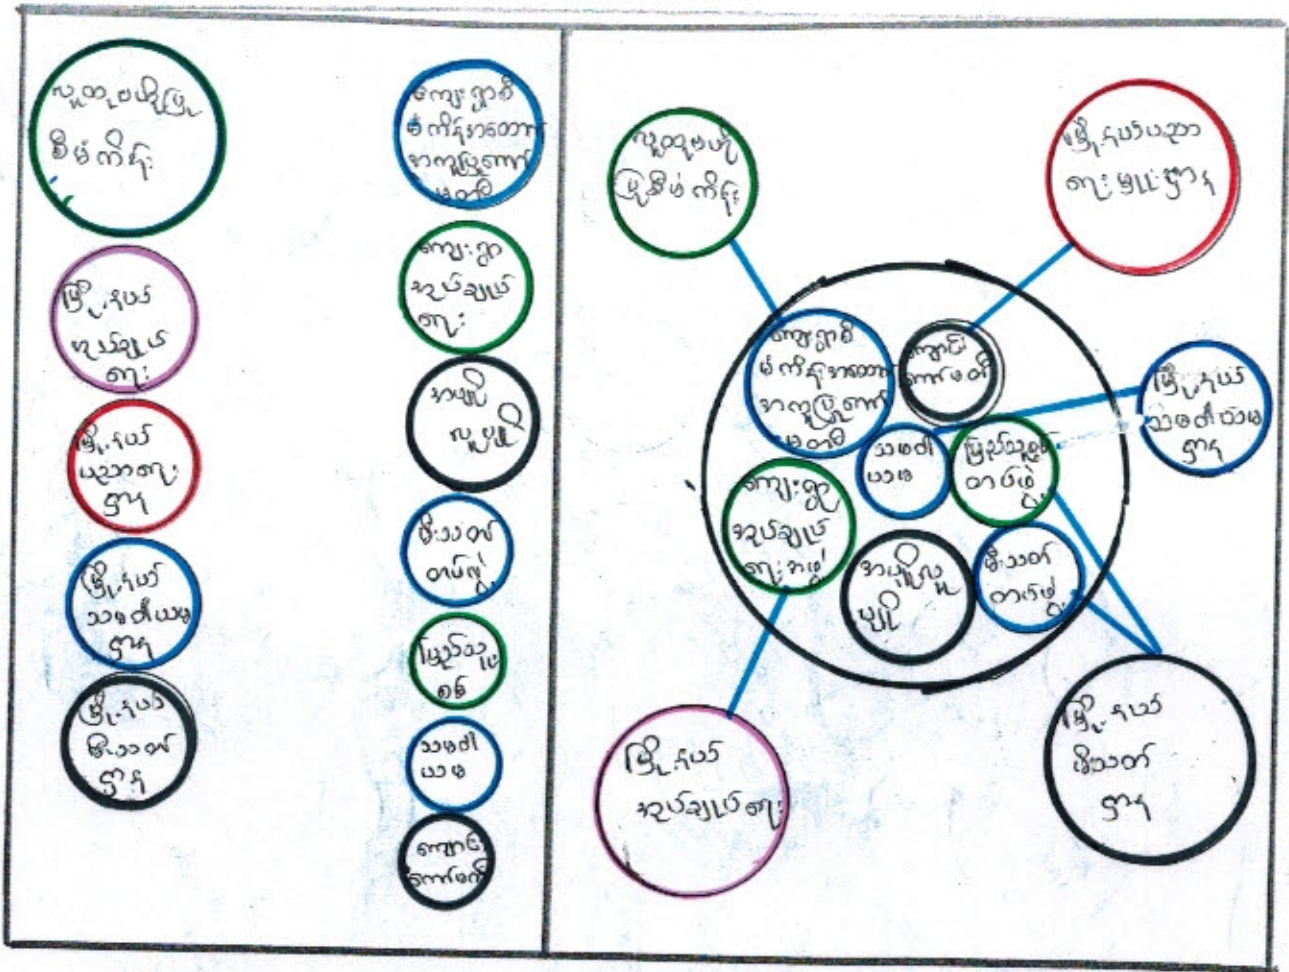 လူထုဗဟိုပြု
စီမံကိန်း
မြို့နယ်
အုပ်ချုပ်
ရေး
မြို့နယ်
ပညာရေး
ဌာန
မြို့နယ်
သမဝါယမ
ဌာန
မြို့နယ်
မီးသတ်
ဌာန
ကျေးရွာစီ
မံကိန်းအထောက်
အကူပြုကော်
မတီ
ကျေးရွာ
အုပ်ချုပ်
ရေး
အပျို
လူပျို
မီးသတ်
တပ်ဖွဲ့
ပြည်သူ့
စစ်
သမဝါ
ယမ
ကျောင်း
ကော်မတီ
လူထုဗဟို
ပြုစီမံကိန်း
မြို့နယ်ပညာ
ရေးမှူးဌာန
ကျေးရွာစီ
မံကိန်းအထောက်
အကူပြုကော်
မတီ
ကျောင်း
ကော်မတီ
မြို့နယ်
သမဝါယမ
ဌာန
သမဝါ
ယမ
ပြည်သူ့စစ်
တပ်ဖွဲ့
ကျေးရွာ
အုပ်ချုပ်
ရေးအဖွဲ့
အပျိုလူ
ပျို
မီးသတ်
တပ်ဖွဲ့
မြို့နယ်
အုပ်ချုပ်ရေး
မြို့နယ်
မီးသတ်
ဌာန